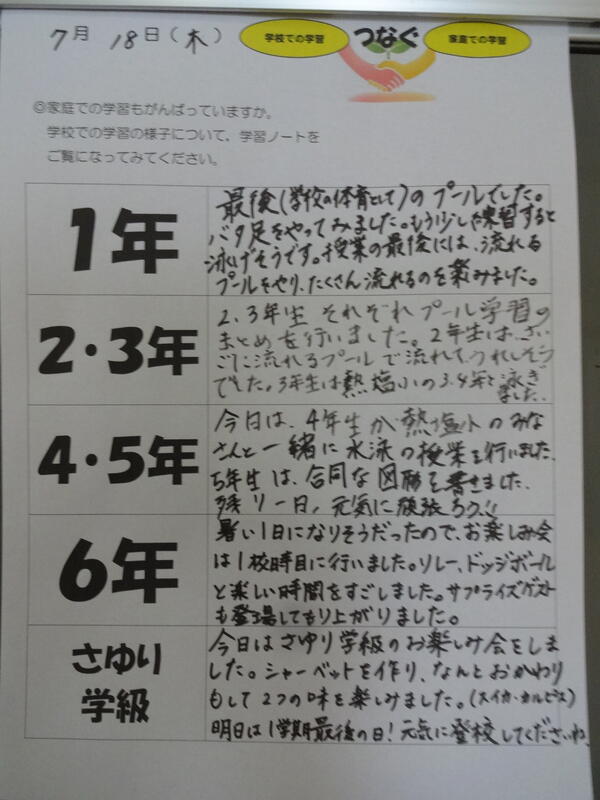 7月 18日(木)
学校での学習
つなぐ
家庭での学習
◎家庭での学習もがんばっていますか。
学校での学習の様子について、学習ノートを
ご覧になってみてください。
1年
最後(学校の体育として)のプールでした。
バタ足をやってみました。もう少し練習すると
泳げそうです。授業の最後には、流れる
プールをやり、たくさん流れるのを楽しみました。
2・3年
2、3年生 それぞれプール学習の
まとめを行いました。2年生は、さい
ごに流れるプールで流れて、うれしそう
でした。3年生は熱塩小の3.4年と泳ぎ
ました。
4・5年
今日は、4年生が熱塩小のみな
さんと一緒に水泳の授業を行いました。
5年生は、合同な図形を書きました。
残り一日、元気に頑張ろう!!
6年
暑い1日になりそうだったので、お楽しみ会
は1校時目に行いました。リレー、ドッジボール
と楽しい時間をすごしました。サプライズゲスト
も登場してもり上がりました。
さゆり
学級
今日はさゆり学級のお楽しみ会をしま
した。シャーベットを作り、なんとおかわり
もして2つの味を楽しみました。(スイカ・カルピス)
明日は1学期最後の日!元気に登校してくださいね。